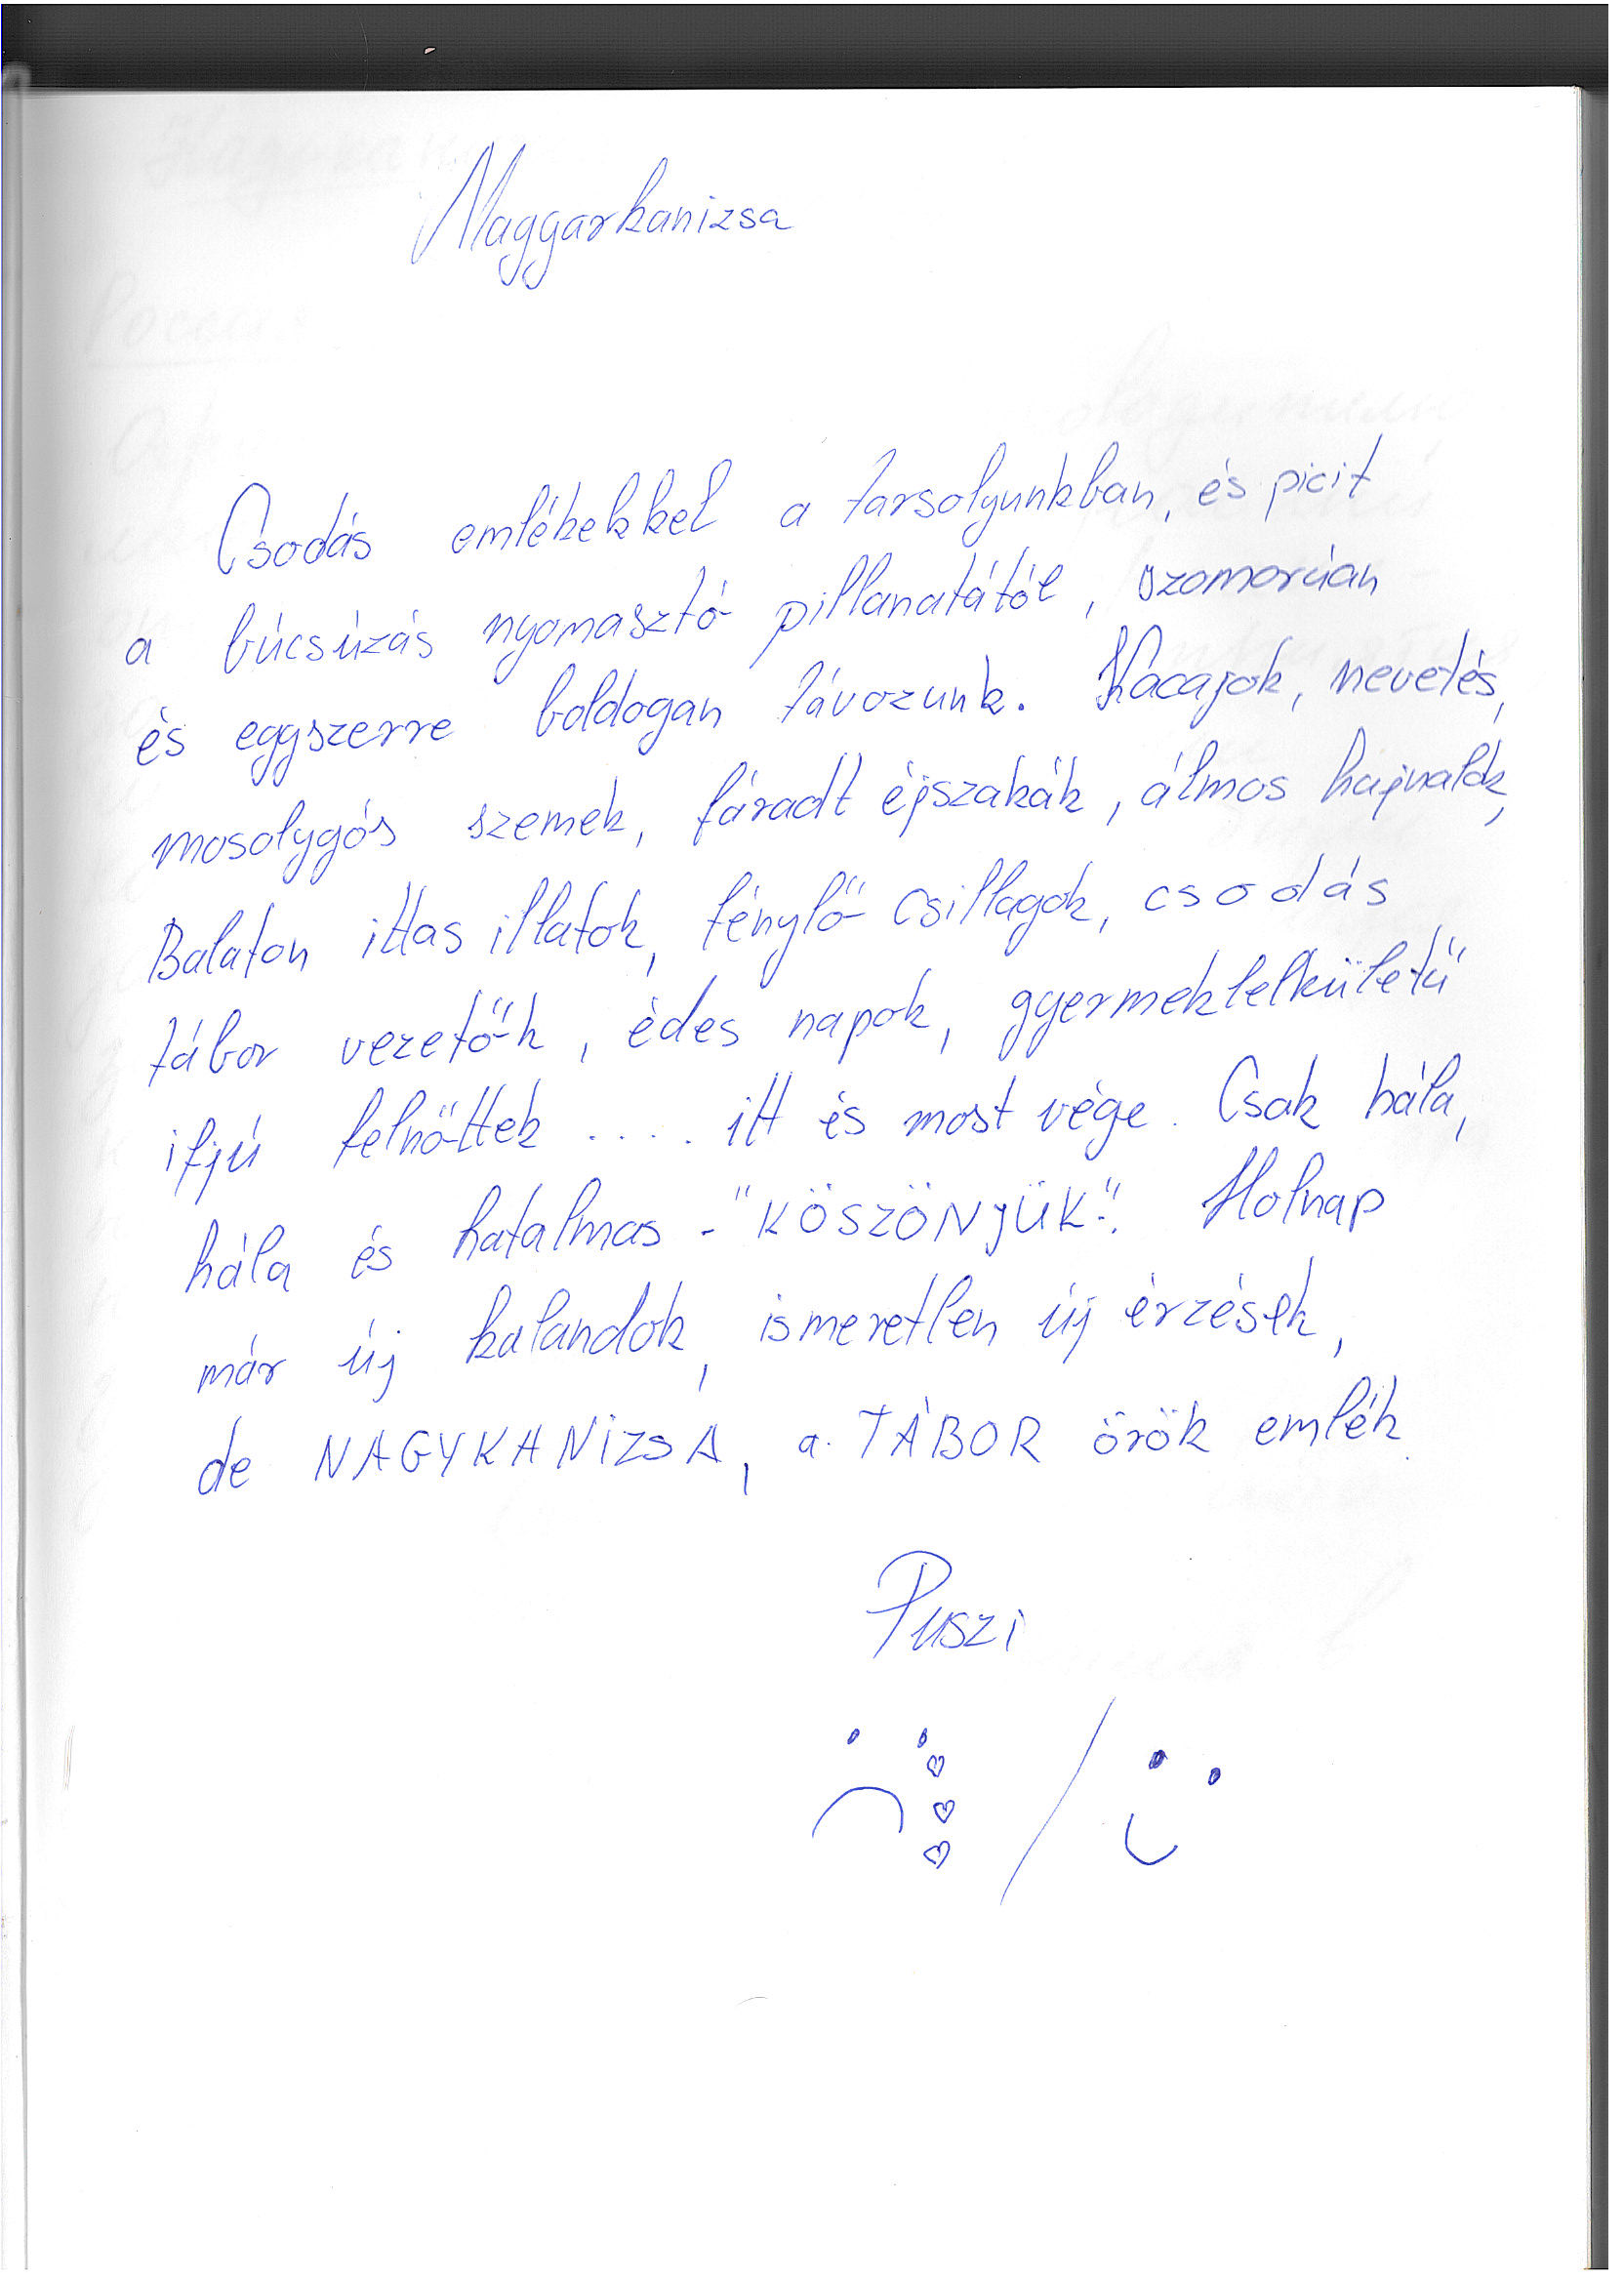 Magyarkanizsa
Csodás emlékekkel a tarsolyunkban, és picit
a búcsúzás nyomasztó pillanatától, szomorúan
és eggszerre boldogan távozunk. Kacajok, nevetés,
mosolygós szemek, fáradt éjszakák, álmos hajnalok,
Balaton ittas illatok, fénylő csillagok, csodás
tábor vezetők, édes napok, gyermeklelkületű
ifjú felnőttek .... itt és most vége. Csak hála,
hála és hatalmas -"KÖSZÖNJÜK". Holnap
már új kalandok, ismeretlen új érzések,
de NAGYKANIZSA, a TÁBOR örök emlék.
Puszi